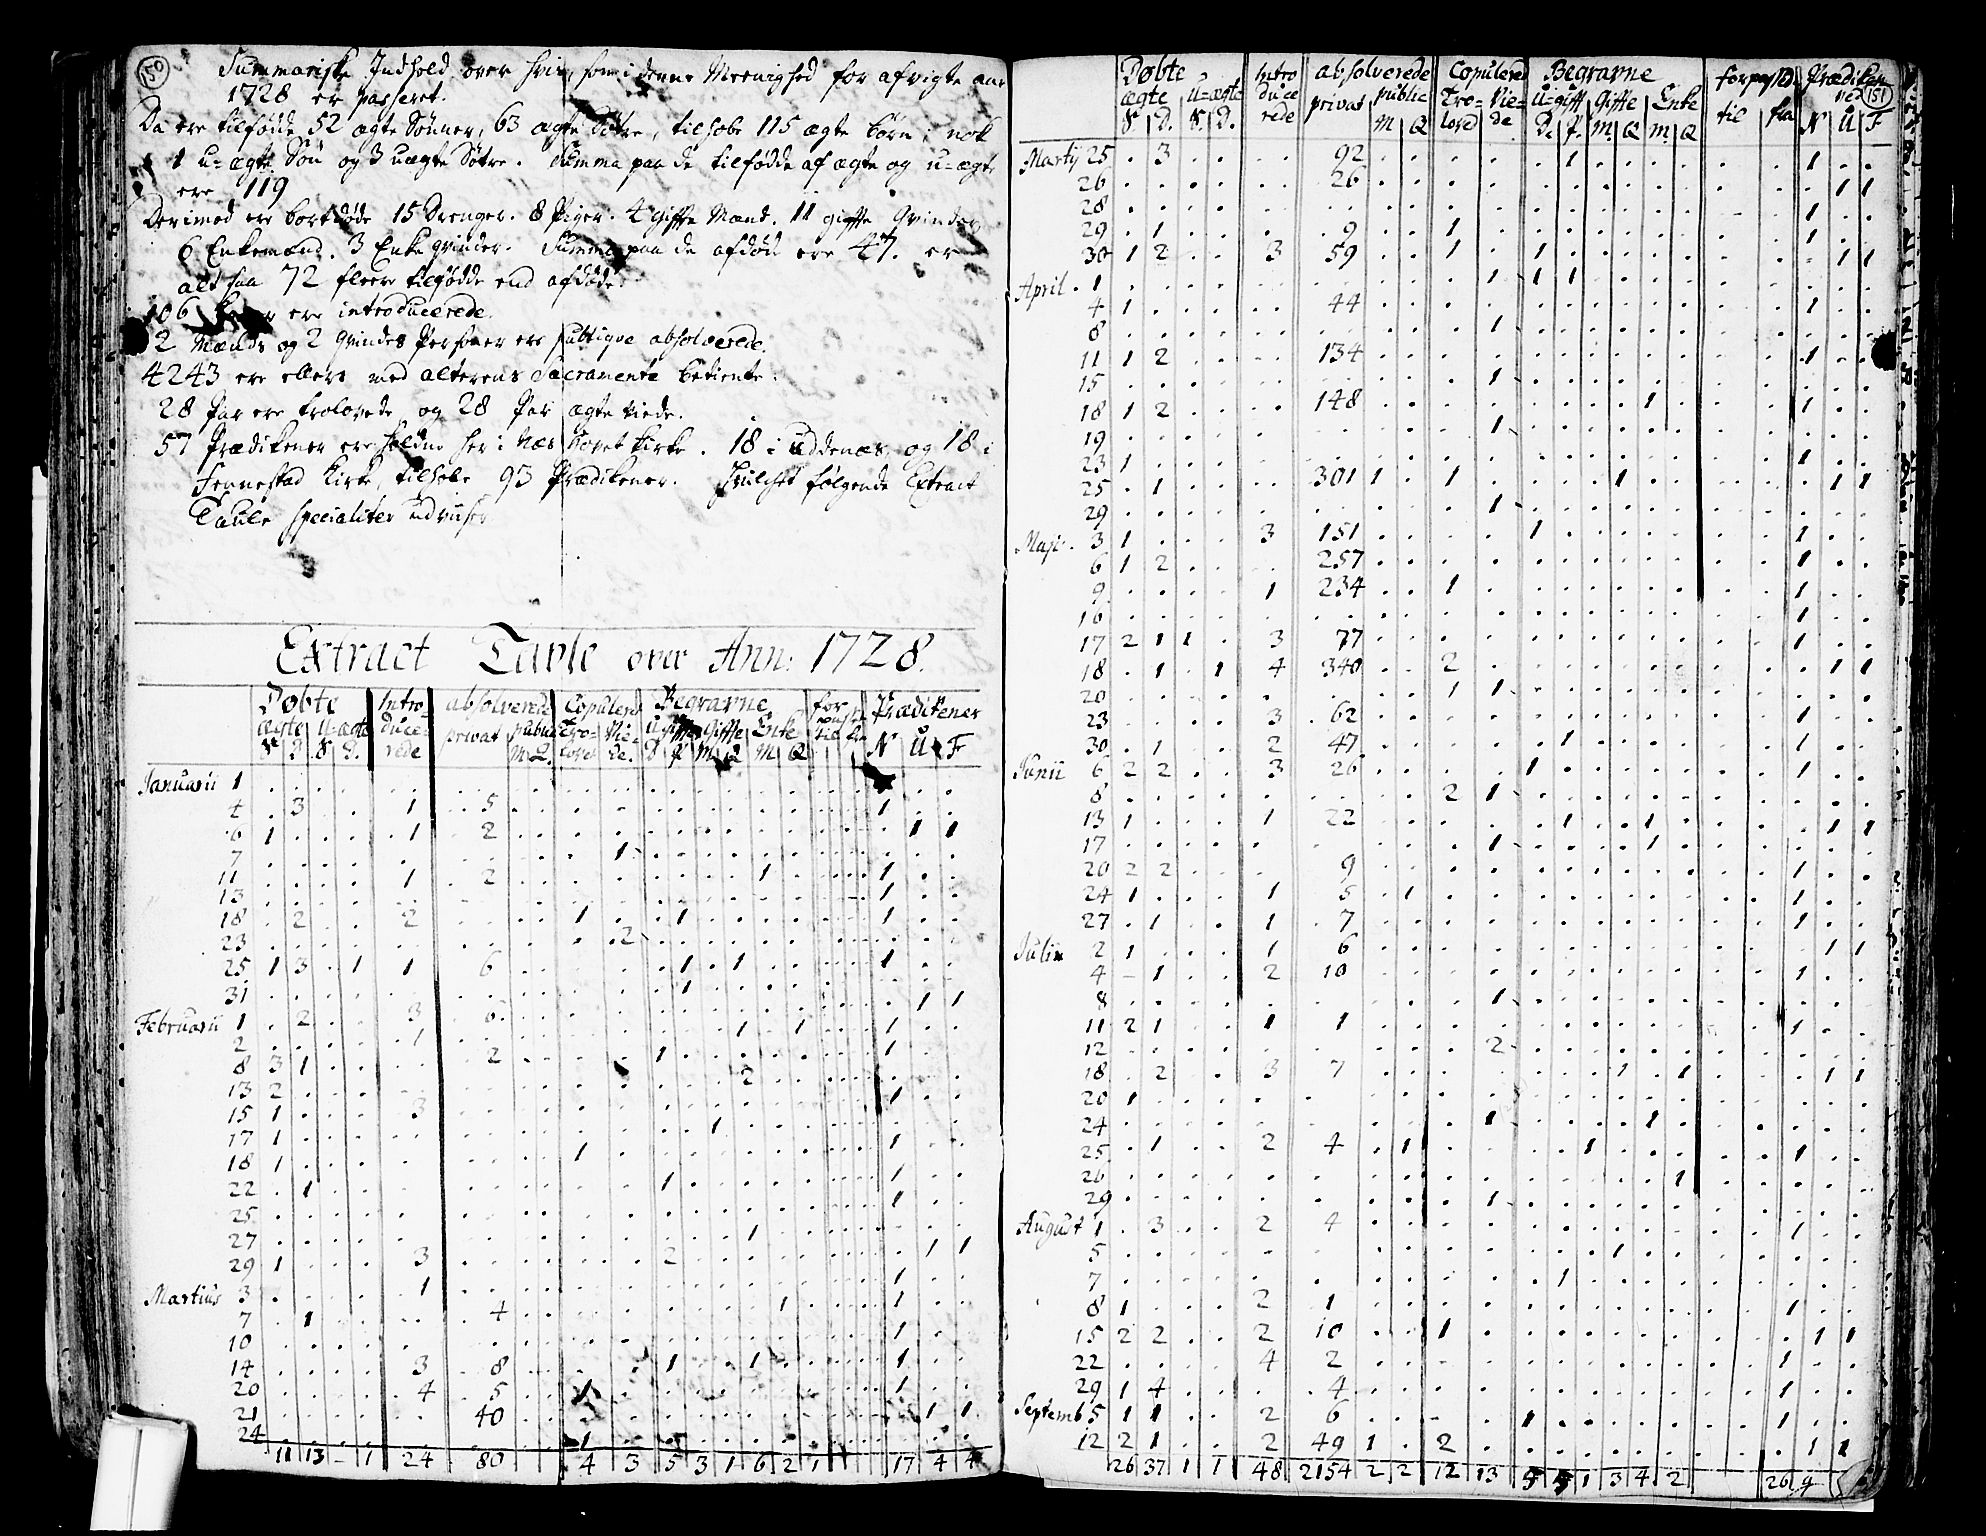 150
Summariske Indhold over hvis, som i denne Meenighed for afvigte aar
1728 er passeret.
Da ere tilfødde 52 ægte Sønner, 63 ægte Døtre, tilhobe 115 ægte børn; nok
1 u-ægte Søn og 3 uægte Døtre. Summa paa de tilfødde af ægte og u-ægte
ere 119
Derimod ere bortdøde 15 Drenger. 8 Piger. 4 gifte Mænd. 11 gifte Qvinder
6 Enkemænd. 3 Enkeqvinder. Summa paa de afdøde ere 47. er
alt saa 72 fleere tilfødde end afdøde.
106 ere introducerede.
2 Mænds og 2 Qvindes Personer ere publiqve absolverede.
4243 ere ellers med alterens Sacramente betiente.
28 Par ere trolovede og 28 Par ægte viede.
57 Prædikener ere holdne her i Næs hovet kirke. 18 i Uddenæs og 18 i
Fennestad kirke, tilhobe 93 Prædikener. Hvilchet følgende Extract
Taule specialiter udviiser.
Extract Tavle over Ann: 1728.
Døbte Intro- absolverede Copulered Begravne for Prædikener
ægte u-ægte duce- privat Tro- Vie- u-gifte Gifte Enke til fra N U F
S D S. D. rede M Q. lovet de. D P M Q M Q
Januarii 1
4 3 1 5 1
6 1 1 2 1 1
7 1
11 1 2 1 1
13
18 2 2 1 1 1
23 2
25 1 3 1 1 6 1 1 1
31 1 1 1
Februarii 1 2 3 6 1 1 1
2 1 1
8 3 1 2 1
13 2 2
15 1 3 1
17 1 1
18 1 1 1
22 1 1 1
25 1
27 1
29 1 3 2 1 1
Martius 3 1 1
7 1 4 1 1
10 1
14 3 8 1 1 1
20 4 5 1 1
21 40 1 1
24 1
11 13 - 1 24 80 4 3 5 3 1 6 2 1 17 4 4
151
Døbte Intro absolverede Copulered Begravne forpasset Prædiken
ægte u-ægte duce privat publice Tro- Vie- u-gift Gifte Enke til fra ved
S. D. S. D. rede M Q loved de D. P. M. Q M. Q N U F
Martij 25 3 92 1 1
26 26 1 1
28 1
29 1 9 1 1
30 1 2 3 59 1 1 1 1
April 1 1 1 1
4 1 44
8 1
11 1 2 134 1
15 1
18 1 2 148 1 1
19 1
23 1 1
25 1 301 1 1 1 1 1
29 1
Maji 3 1 3 151 1 1
6 1 2 257 1
9 1 234 1 1
16 1
17 2 1 1 3 77 1
18 1 1 4 340 2 1 1
20 1 1
23 3 62 1
30 1 2 47 1 1
Junii 6 2 2 3 26 1 1
8 2 1
13 1 1 22 1 1 1 1
17 1 1
20 2 2 9 1
24 1 1 5 1 1
27 1 1 7 1
Julii 2 1 1 6 1 1
4 - 1 2 10 1
8 1
11 2 1 1 1 1
12 2
18 2 3 7 1 1 1 1
20 1
24 1 1
25 1 2 4 1 1 1
26 1
29 1
August 1 3 2 4 1
5 1
7 1
8 1 2 1 1
15 2 2 2 10 1 1 1
22 4 2 1
29 1 4 4 1
Septemb 5 1 1 2 6 1 1
12 2 1 2 49 1 2 1 1
26 37 1 1 48 2154 2 2 12 13 5 5 1 3 4 2 26 9